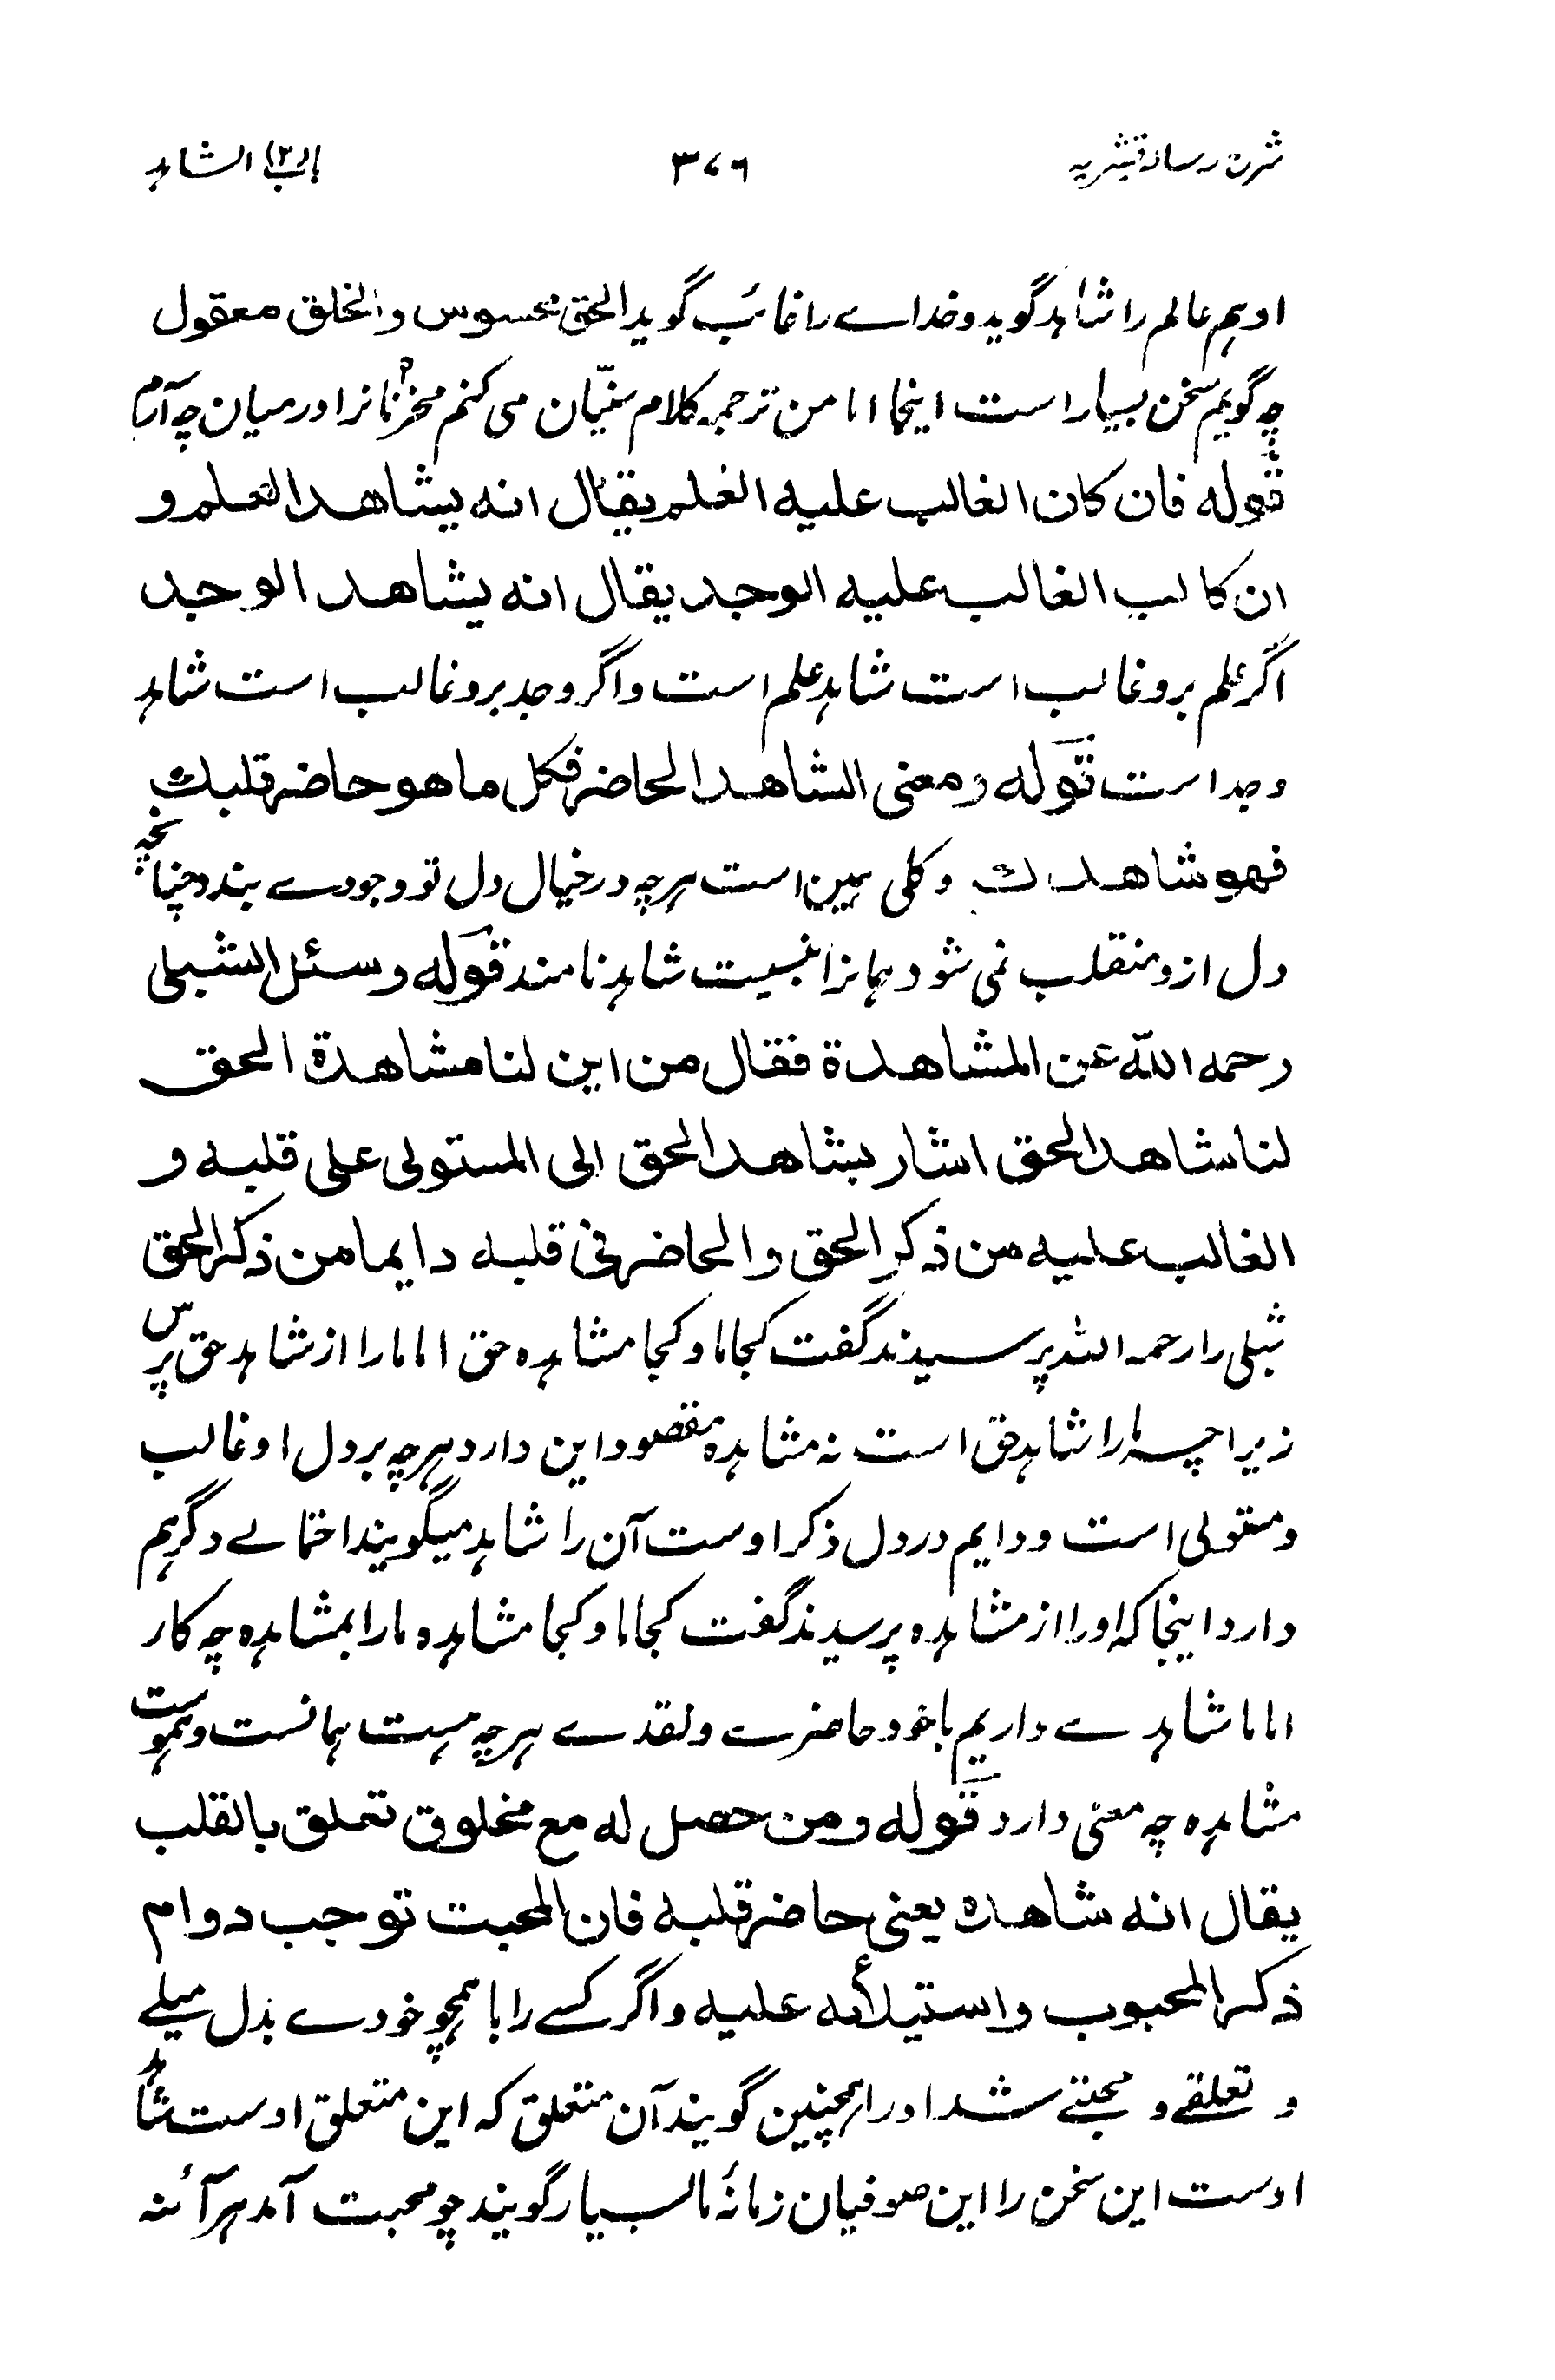 شرح رسالہ قشیریہ ۳۷۶ باب (۲) الشاہد
او ہم عالم را شاہد گوید و خدا سے را غائب گوید الحق محسوس والخلق معقول
چہ گویم سخن بسیار است اینجا اما من ترجمہ کلام سنیّان می کنم را در میان چہ آرم
قوله فان كان الغالب عليه العلم يقال انه يشاهد العلم و
ان كا لب الغالب عليه الوجد يقال انه يشاهد الوجد
اگر علم برو غالب است شاہد علم است و اگر وجد برو غالب است شاہد
وجد است قوله ومعنى الشاهد الحاضر فكل ما هو حاضر قلبك
فهو شاهدك و کلی ہین است ہرچہ در خیال دل تو وجودے بندد چنانچہ
دل از و منقلب نمی شود ہمانرا شاہد نامند قوله وسئل الشبلي
رحمه الله عن المشاهدة فقال من اين لنا مشاهدة الحق
لنا شاهد الحق اشار بشاهد الحق الى المستولى على قلبه و
الغالب عليه من ذكر الحق والحاضر فى قلبه دايما من ذكر الحق
شبلی را رحمہ اللہ پرسیدند گفت کجا ما و کجا مشاہدہ حق اما ما را از شاہد حق پرس
زیراچہ ما را شاہد حق است نہ مشاہدہ مقصود این دارد ہرچہ بر دل او غالب
و مستولی است و دایم در دل ذکر اوست آن را شاہد میگویند احتمالے دگر ہم
دارد اینجا کہ او را از مشاہدہ پرسیدند گفت کجا ما و کجا مشاہدہ ما را بمشاہدہ چہ کار
اما ما شاہدے داریم با خود حاضرے و نقدے ہرچہ ہست ہمانست و ہموست
مشاہدہ چہ معنی دارد قوله ومن حصل له مع مخلوق تعلق بالقلب
يقال انه شاهده يعنى حاضر قلبه فان المحبت توجب دوام
ذكر المحبوب واستيلائه عليه و اگر کسے را با ہمچو خودے بدل میلے
و تعلقے و محبتے شد او را ہمچنین گویند آن متعلق کہ این متعلق اوست شاہد
اوست این سخن را این صوفیان زمانۂ ما بسیار گویند چو محبت آمد ہر آئنہ